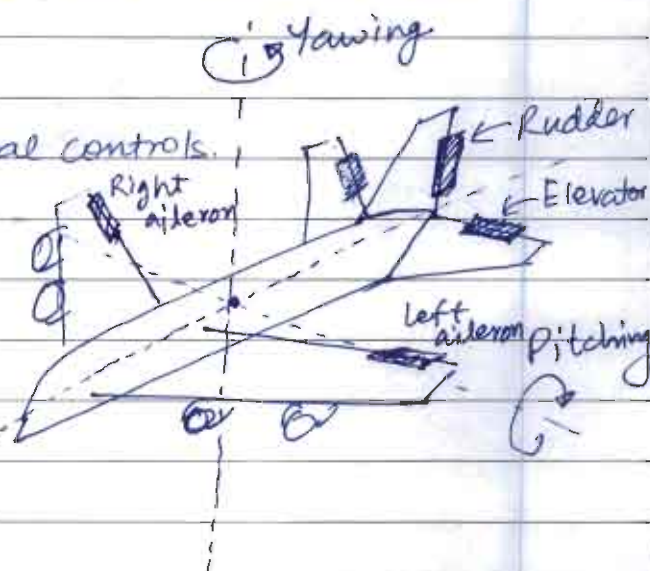 Yawing
Rudder
al controls.
Right
aileron
Elevator
Left
aileron
Pitching